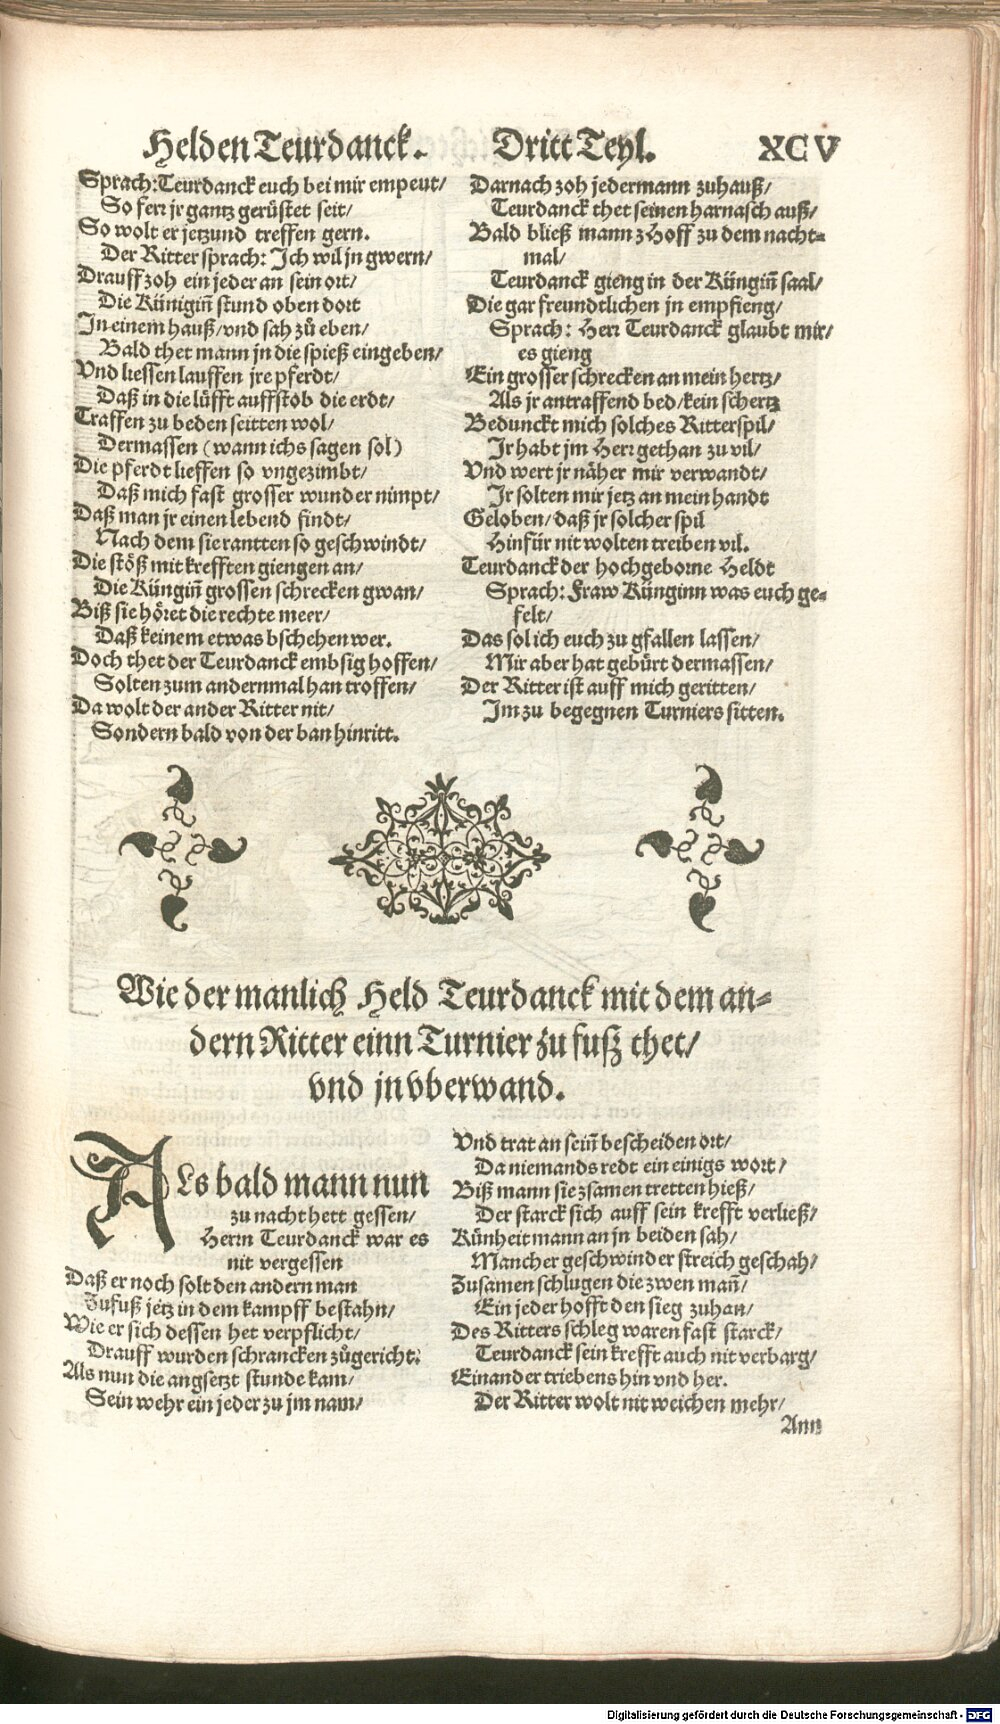 Helden Teurdanck. Dritt Teyl. XCV
Sprach: Teurdanck euch bei mir empeut/
So ferr jr gantz gerüstet seit/
So wolt er jetzund treffen gern.
Der Ritter sprach: Ich wil jn gwern/
Drauff zoh ein jeder an sein ort/
Die Künigiñ stund oben dort
In einem hauß/vnd sah zů eben/
Bald thet mann jn die spieß eingeben/
Vnd liessen lauffen jre pferdt/
Daß in die lüfft auffstob die erdt/
Traffen zu beden seitten wol/
Dermassen (wann ichs sagen sol)
Die pferdt lieffen so vngezimbt/
Daß mich fast grosser wunder nimpt/
Daß man jr einen lebend findt/
Nach dem sie rantten so geschwindt/
Die stöß mit krefften giengen an/
Die Küngiñ grossen schrecken gwan/
Biß sie höret die rechte meer/
Daß keinem etwas bschehen wer.
Doch thet der Teurdanck embsig hoffen/
Solten zum andernmal han troffen/
Da wolt der ander Ritter nit/
Sondern bald von der ban hinritt.
Darnach zoh jedermann zuhauß/
Teurdanck thet seinen harnasch auß/
Bald bließ mann z Hoff zu dem nacht-
mal/
Teurdanck gieng in der Küngiñ saal/
Die gar freundtlichen jn empfieng/
Sprach: Herr Teurdanck glaubt mir/
es gieng
Ein grosser schrecken an mein hertz/
Als jr antraffend bed/kein schertz
Bedunckt mich solches Ritterspil/
Ir habt jm Herr gethan zu vil/
Vnd wert jr näher mir verwandt/
Ir solten mir jetz an mein handt
Geloben/daß jr solcher spil
Hinfür nit wolten treiben vil.
Teurdanck der hochgeborne Heldt
Sprach: Fraw Künginn was euch ge-
felt/
Das sol ich euch zu gfallen lassen/
Mir aber hat gebürt dermassen/
Der Ritter ist auff mich geritten/
Im zu begegnen Turniers sitten.
Wie der manlich Held Teurdanck mit dem an-
dern Ritter einn Turnier zu fusz thet/
vnd jn vberwand.
ALs bald mann nun
zu nacht hett gessen/
Herrn Teurdanck war es
nit vergessen
Daß er noch solt den andern man
Zufuß jetz in dem kampff bestahn/
Wie er sich dessen het verpflicht/
Drauff wurden schrancken zůgericht:
Als nun die angsetzt stunde kam/
Sein wehr ein jeder zu jm nam/
Vnd trat an seiñ bescheiden ort/
Da niemands redt ein einigs wort/
Biß mann sie zsamen tretten hieß/
Der starck sich auff sein krefft verließ/
Künheit mann an jn beiden sah/
Mancher geschwinder streich geschah/
Zusamen schlugen die zwen mañ/
Ein jeder hofft den sieg zuhan/
Des Ritters schleg waren fast starck/
Teurdanck sein krefft auch nit verbarg/
Einander triebens hin vnd her.
Der Ritter wolt nit weichen mehr/
Ann
Digitalisierung gefördert durch die Deutsche Forschungsgemeinschaft - DFG